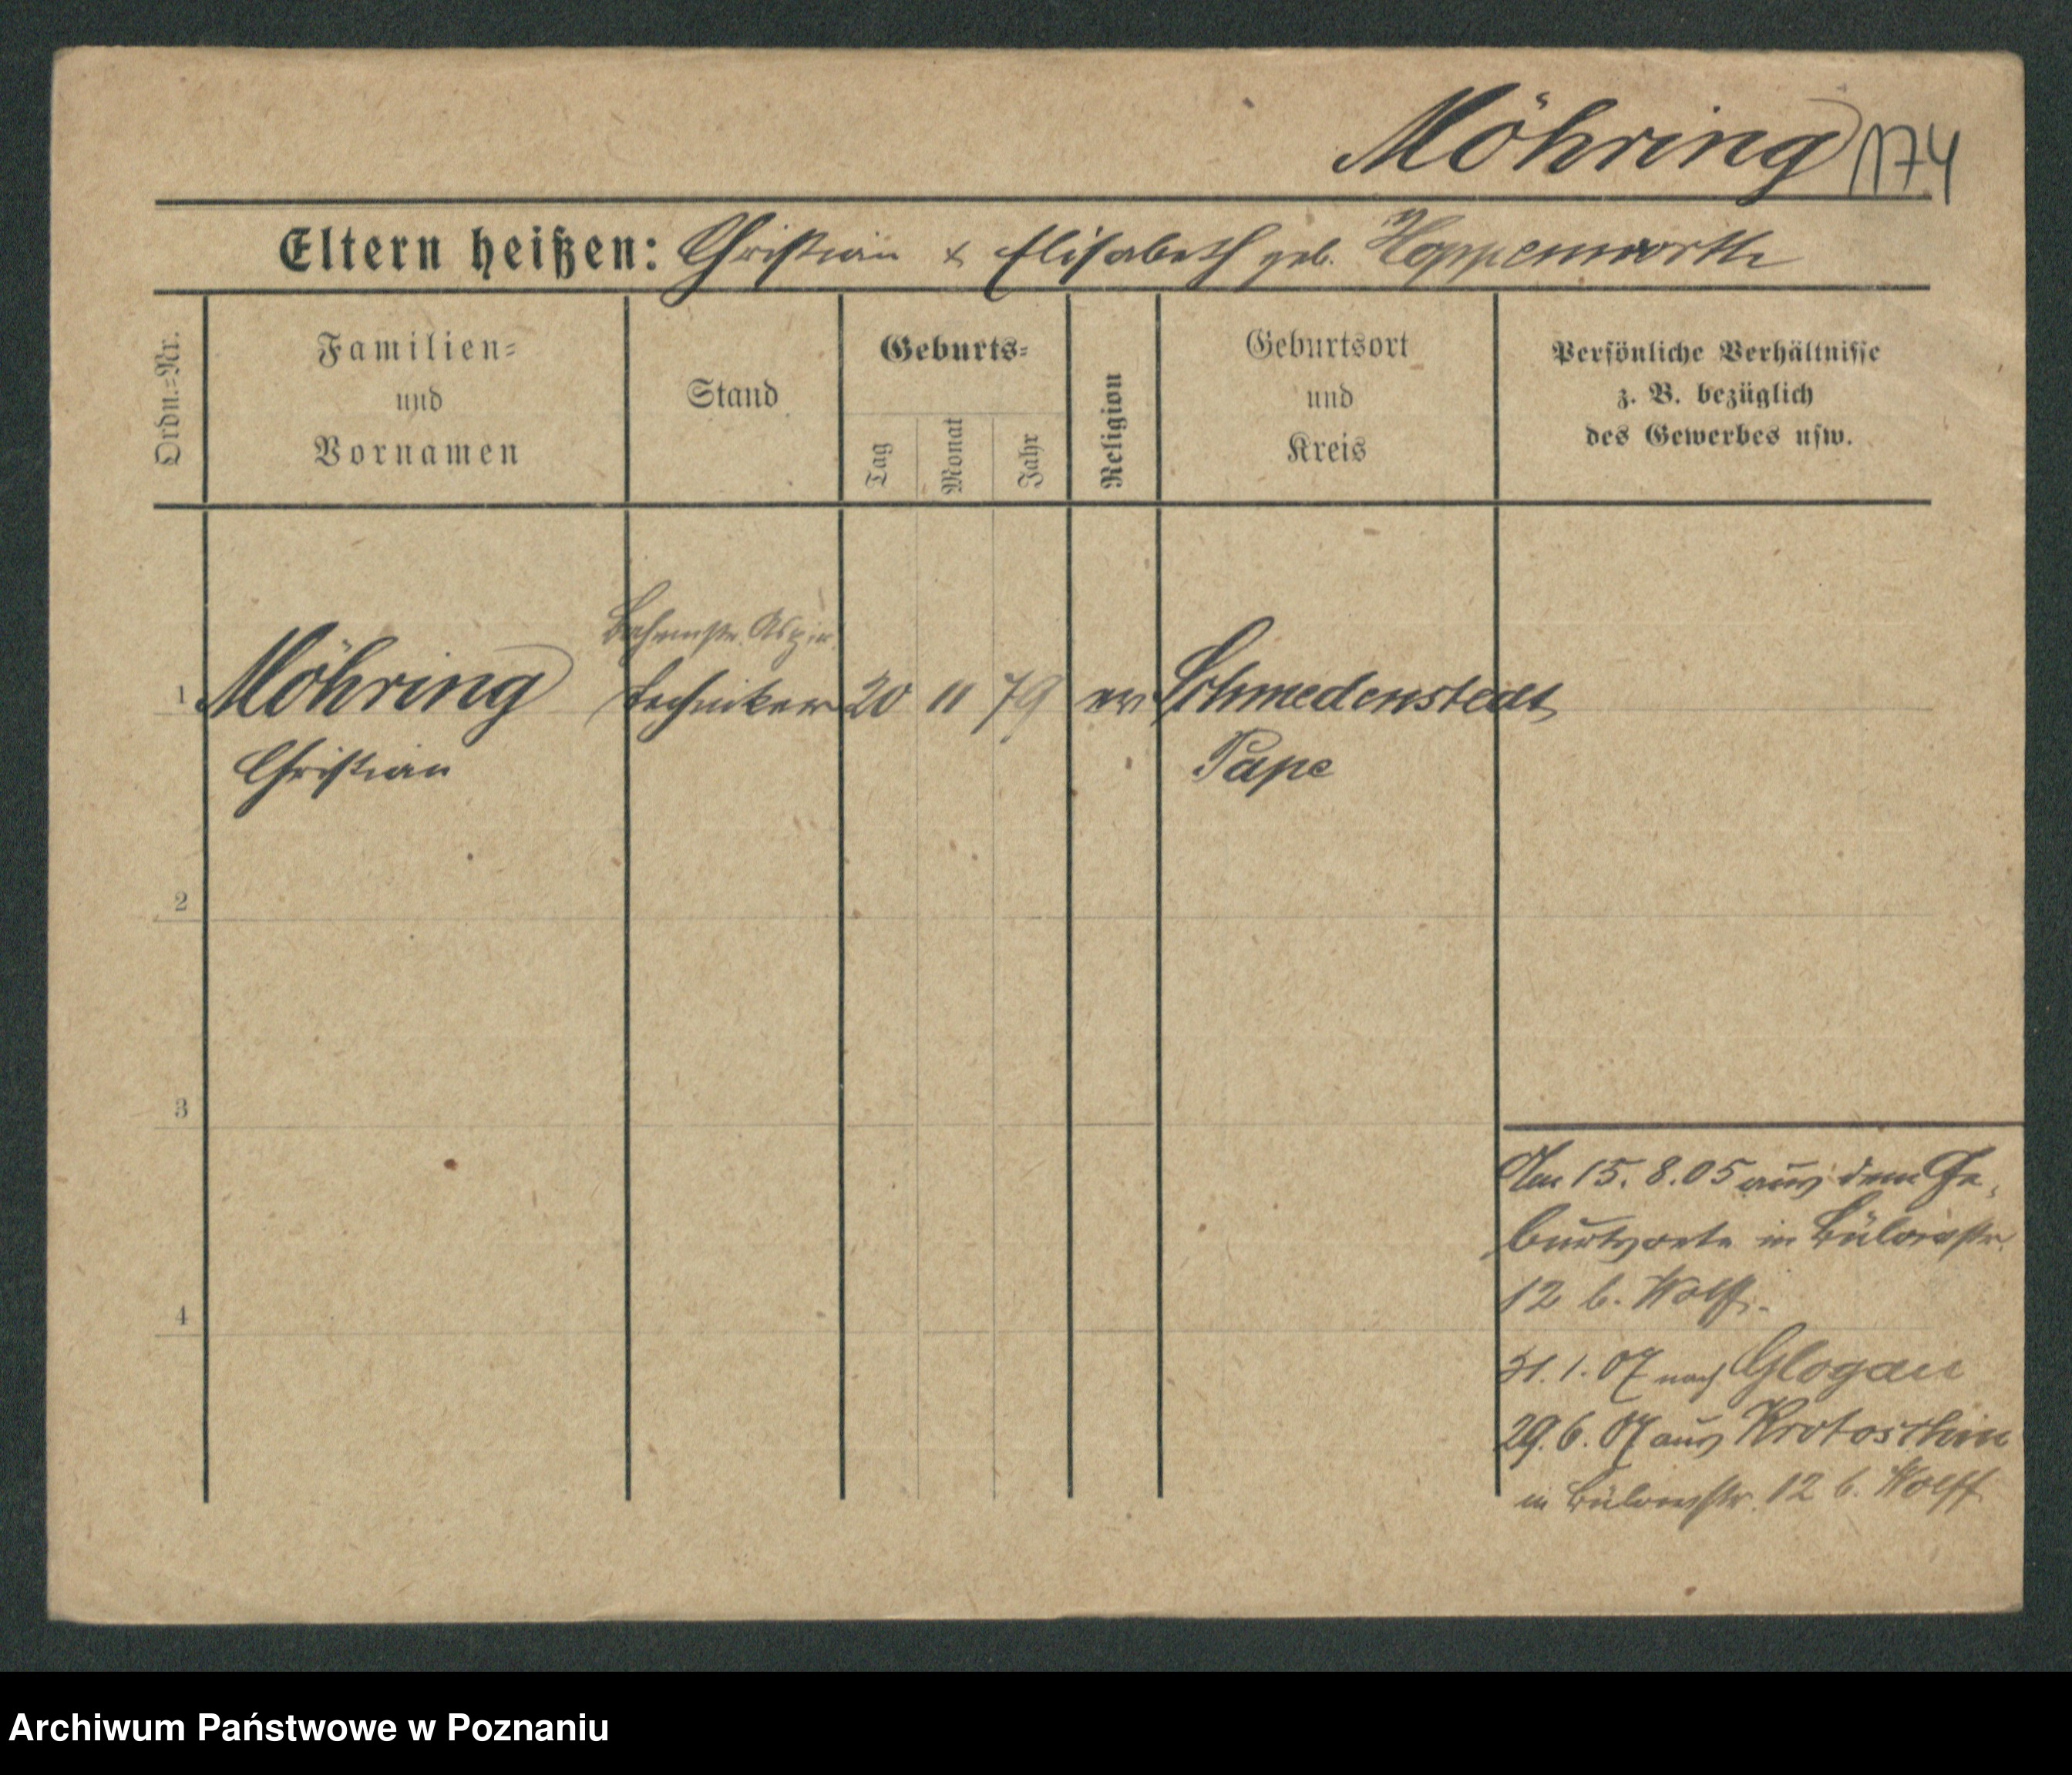 Möhring
174
Eltern heißen: Christian & Elisabeth geb. Hoppenworth
Ordn.=Nr.
Familien=
und
Vornamen
Stand
Geburts=
Tag
Monat
Jahr
Religion
Geburtsort
und
Kreis
Persönliche Verhältnisse
z. B. bezüglich
des Gewerbes usw.
Bahnmstr. Aspir.
1 Möhring Techniker 20 11 79 ev Schmedenstedt
Christian Pape
2
3
4
Am 15. 8. 05 aus dem Ge-
burtsorte in Bülowstr.
12 b. Wolff.
31. 1. 07 nach Glogau
29. 6. 07 aus Krotoschin
in Bülowstr. 12 b. Wolff
Archiwum Państwowe w Poznaniu